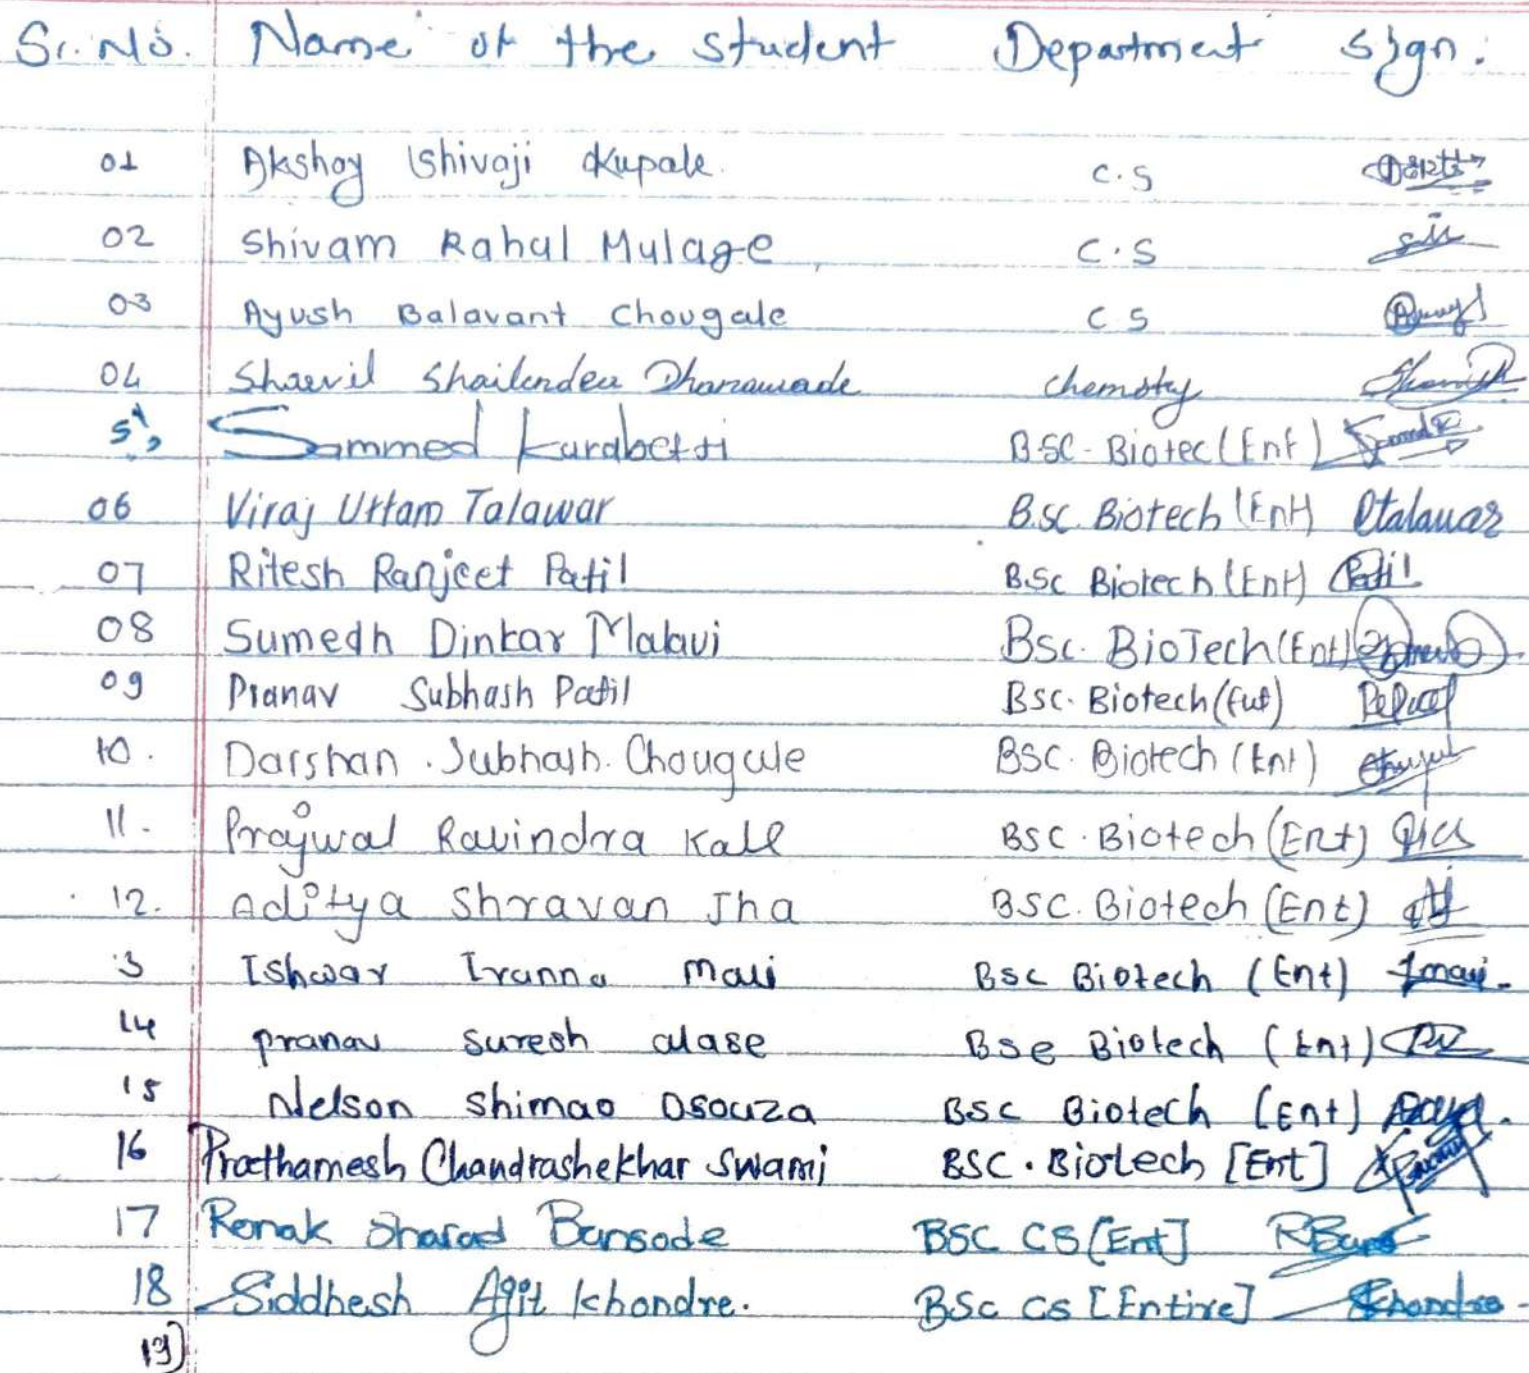 Sr. No. Name of the student Department Sign.
01 Akshay Shivaji Kupale. C.S
02 Shivam Rahul Mulage C.S
03 Ayush Balavant Chougale C S
04 Shaevil Shailendea Dhanawade chemsty
5 Sammed Kurabetti B.SC - Biotec (Ent)
06 Viraj Uttam Talawar B.sc Biotech (Ent) Talawar
07 Ritesh Ranjeet Patil B.Sc Biotech (Ent) Patil
08 Sumedh Dinkar Malavi Bsc. BioTech (Ent)
09 Pranav Subhash Patil Bsc. Biotech (Ent)
10. Darshan . Subhash. Chougule BSC. Biotech (Ent)
11. Prajwal Ravindra Kale BSC. Biotech (Ent)
12. Aditya Shravan Jha BSC. Biotech (Ent)
3 Ishwar Iranna Mali Bsc Biotech (Ent)
14 pranav suresh alase Bsc Biotech (Ent)
15 Nelson Shimao Dsouza BSC Biotech (Ent)
16 Prathamesh Chandrashekhar Swami BSC. Biotech [Ent]
17 Ronak Sharad Bansode BSC CS [Ent] RBans
18 Siddhesh Ajit Khondre. BSc CS [Entire] Khondre
19)